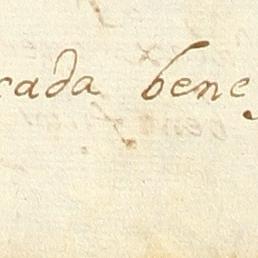 cada bene